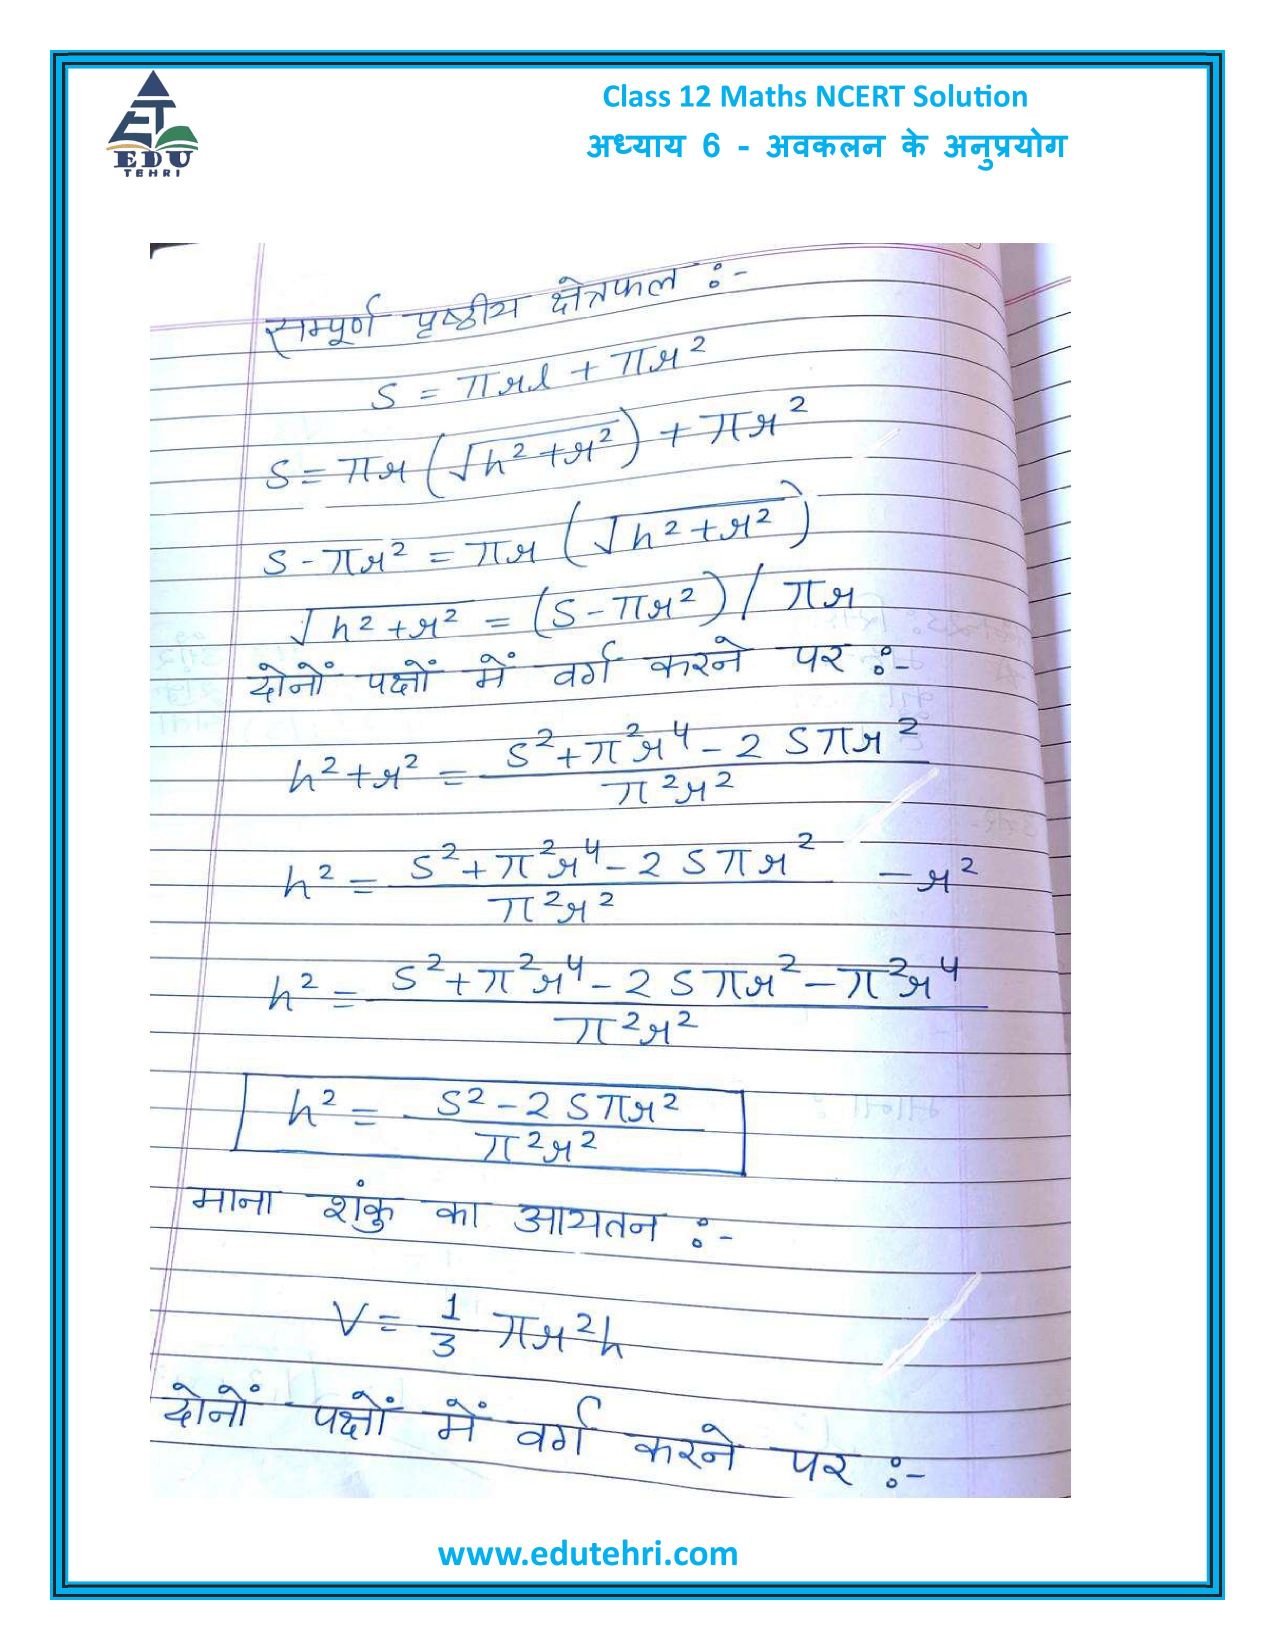 ET
EDU
TEHRI
Class 12 Maths NCERT Solution
अध्याय 6 - अवकलन के अनुप्रयोग
सम्पूर्ण पृष्ठीय क्षेत्रफल :-
S = πrl + πr²
S = πr(√h²+r²) + πr²
S - πr² = πr(√h²+r²)
√h²+r² = (S - πr²) / πr
दोनों पक्षों में वर्ग करने पर :-
h² + r² = S² + π²r⁴ - 2 Sπr² / π²r²
h² = S² + π²r⁴ - 2 Sπr² / π²r² - r²
h² = S² + π²r⁴ - 2 Sπr² - π²r⁴ / π²r²
h² = S² - 2 Sπr² / π²r²
माना शंकु का आयतन :-
V = 1/3 πr²h
दोनों पक्षों में वर्ग करने पर :-
www.edutehri.com